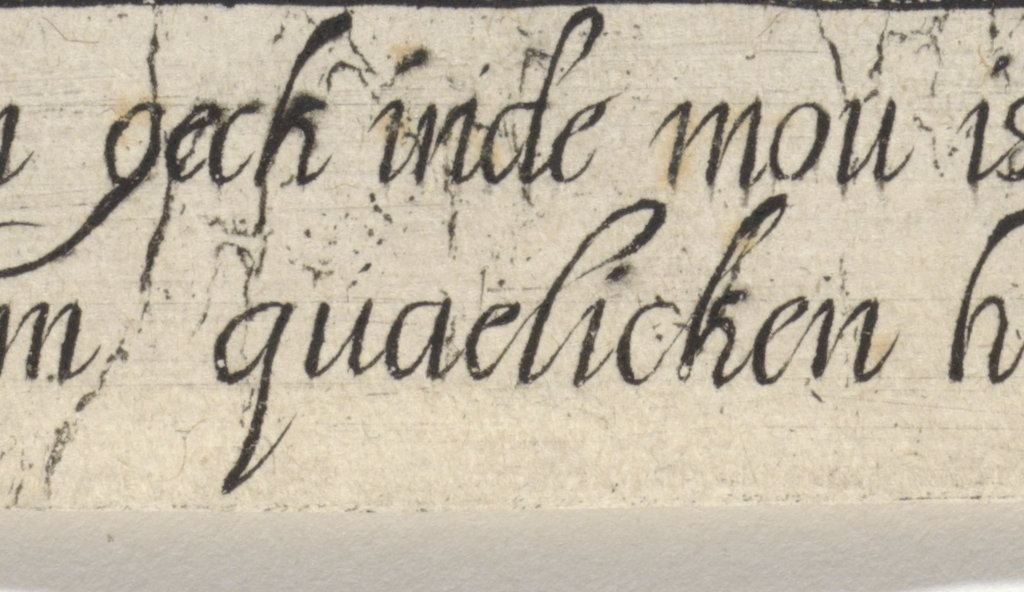 geck inde mou is
quaelicken